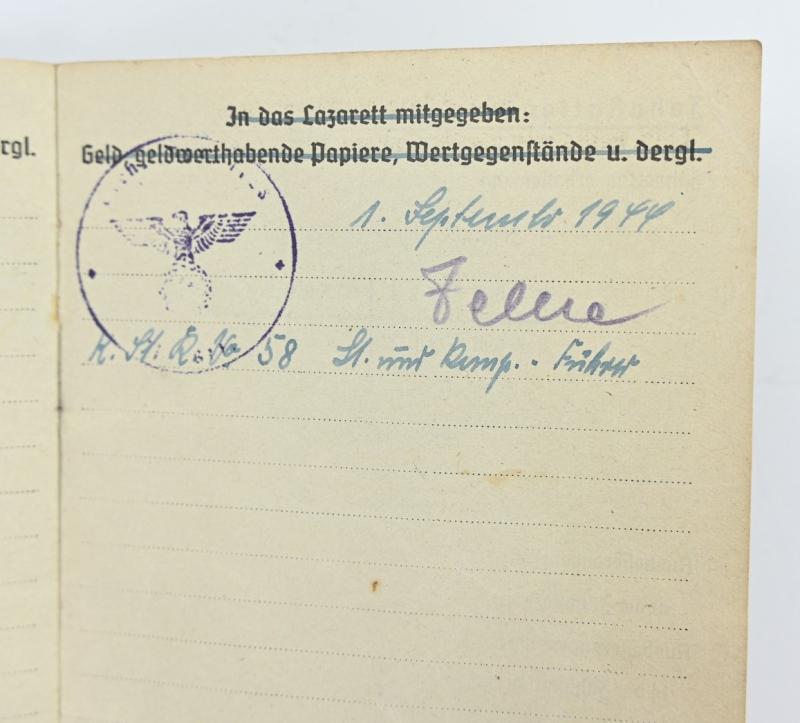 rgl.
In das Lazarett mitgegeben:
Geld, geldwerthabende Papiere, Wertgegenstände u. dergl.
1. September 1944
K. St. 58 Lt. und Komp.-Führer